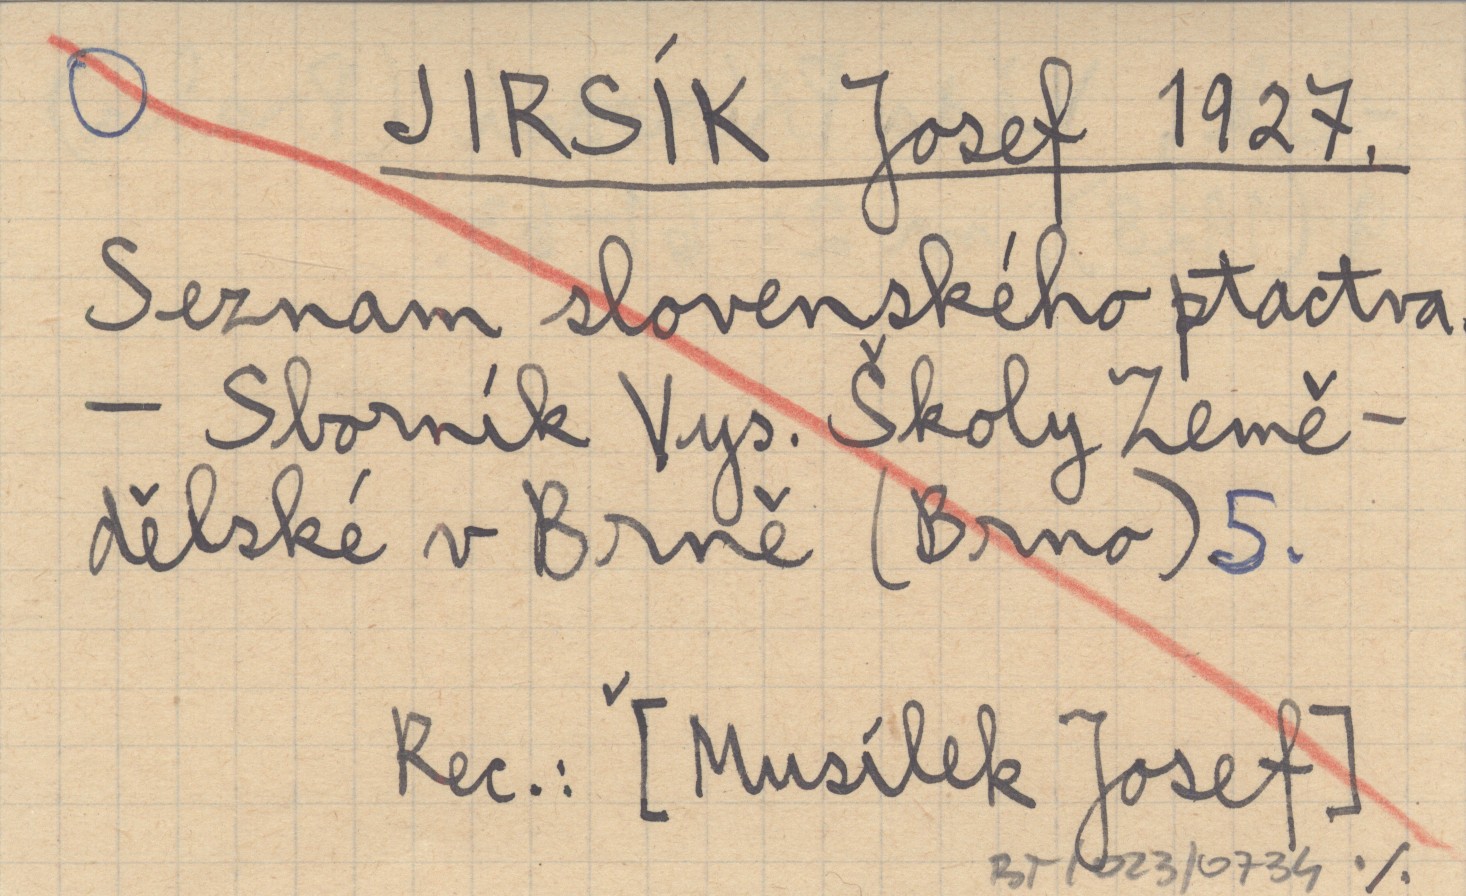 JIRSÍK Josef 1927.
Seznam slovenského ptactva.
— Sborník Vys. Školy Země-
dělské v Brně (Brno) 5.
Rec.: [Musílek Josef]
BT/023/0734 ·/.